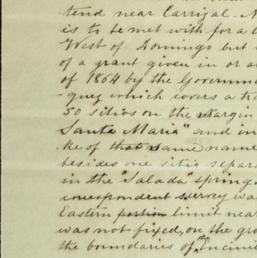 tend near Carrizal. N
is to be met with for a
West of Domingo but
of a grant given in or a
of 1864 by the Governme
quez which covers a tra
50 sitios on the margin
Santa Maria" and in
ke of that same name
besides one sitio separa
in the "Salada" spring
correspondent survey wa
Eastern portion limit near
was not fixed, on the gro
the boundaries of "Encini